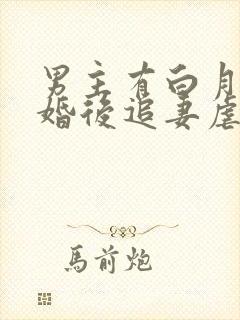 男主有白月
婚後追妻虐
馬前炮